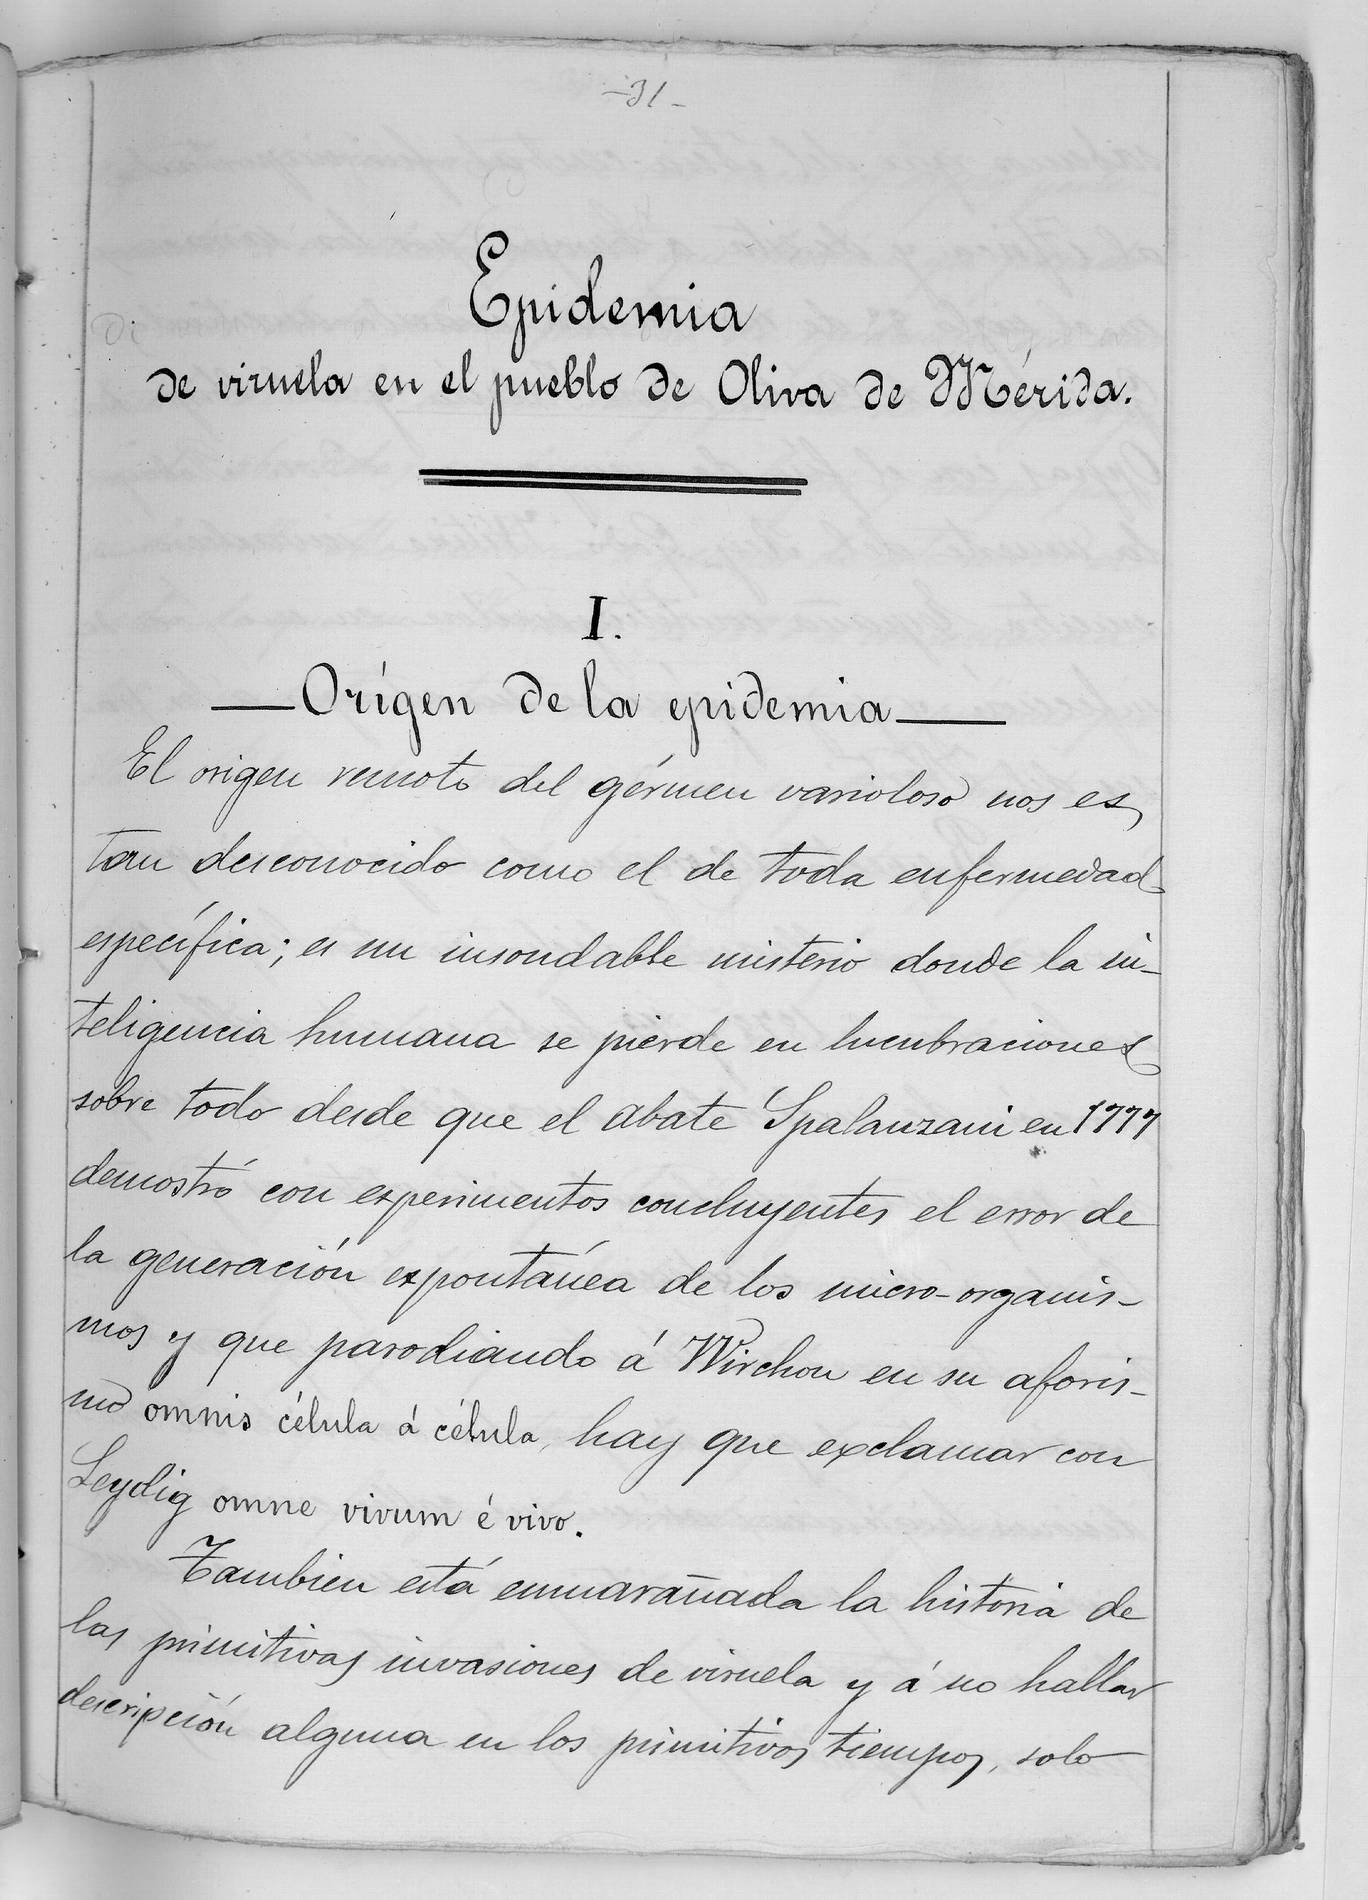 -31-
Epidemia
de viruela en el pueblo de Oliva de Mérida.
I.
Orígen de la epidemia
El origen remoto del gérmen varioloso nos es
tan desconocido como el de toda enfermedad
específica; es un insondable misterio donde la in-
teligencia humana se pierde en lucubraciones
sobre todo desde que el abate Spalanzani en 1777
demostró con experimentos concluyentes el error de
la generación expontánea de los micro-organis-
mos y que parodiando á Wirchou en su aforis-
mo omnis célula á célula, hay que exclamar con
Leydig omne vivum é vivo.
Tambien está enmarañada la historia de
las primitivas invasiones de viruela y á no hallar
descripción alguna en los primitivos tiempos, solo